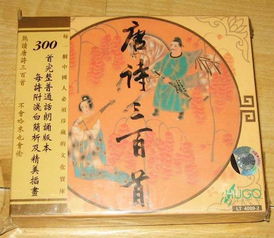 唐詩三百首
每一個中國人必須珍藏的文化寶庫
300
首完整普通話朗誦版本
每詩附淺白簡析及精美插畫
熟讀唐詩三百首
不會吟來也會偷
HUGO
LT 4009-2